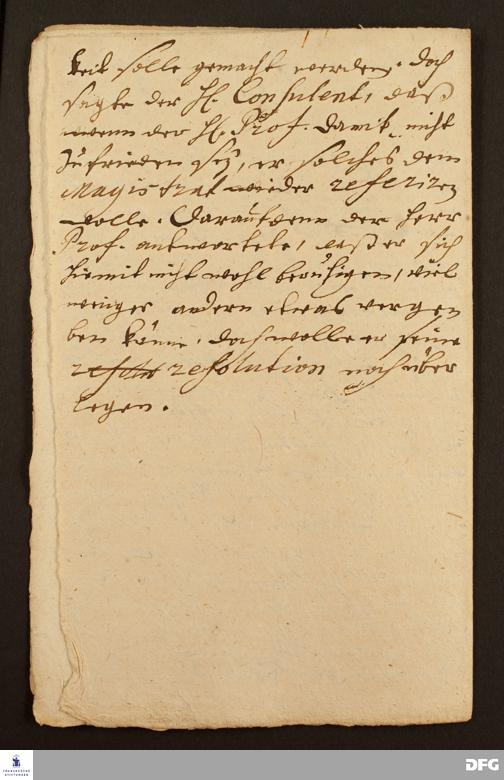 keit solle gemacht werden. Doch
sagte der H. Consulent, daß
wenn der H. Prof. damit nicht
zufrieden sey, er solches dem
Magistrat wieder referiren
wolle. Darauf denn der Herr
Prof. antwortete, daß er sich
hiemit nicht wohl beruhigen, viel
weniger andern etwas verge
ben könne, doch wolle er seine
resolution noch über
legen.
FRANCKESCHE
STIFTUNGEN
DFG